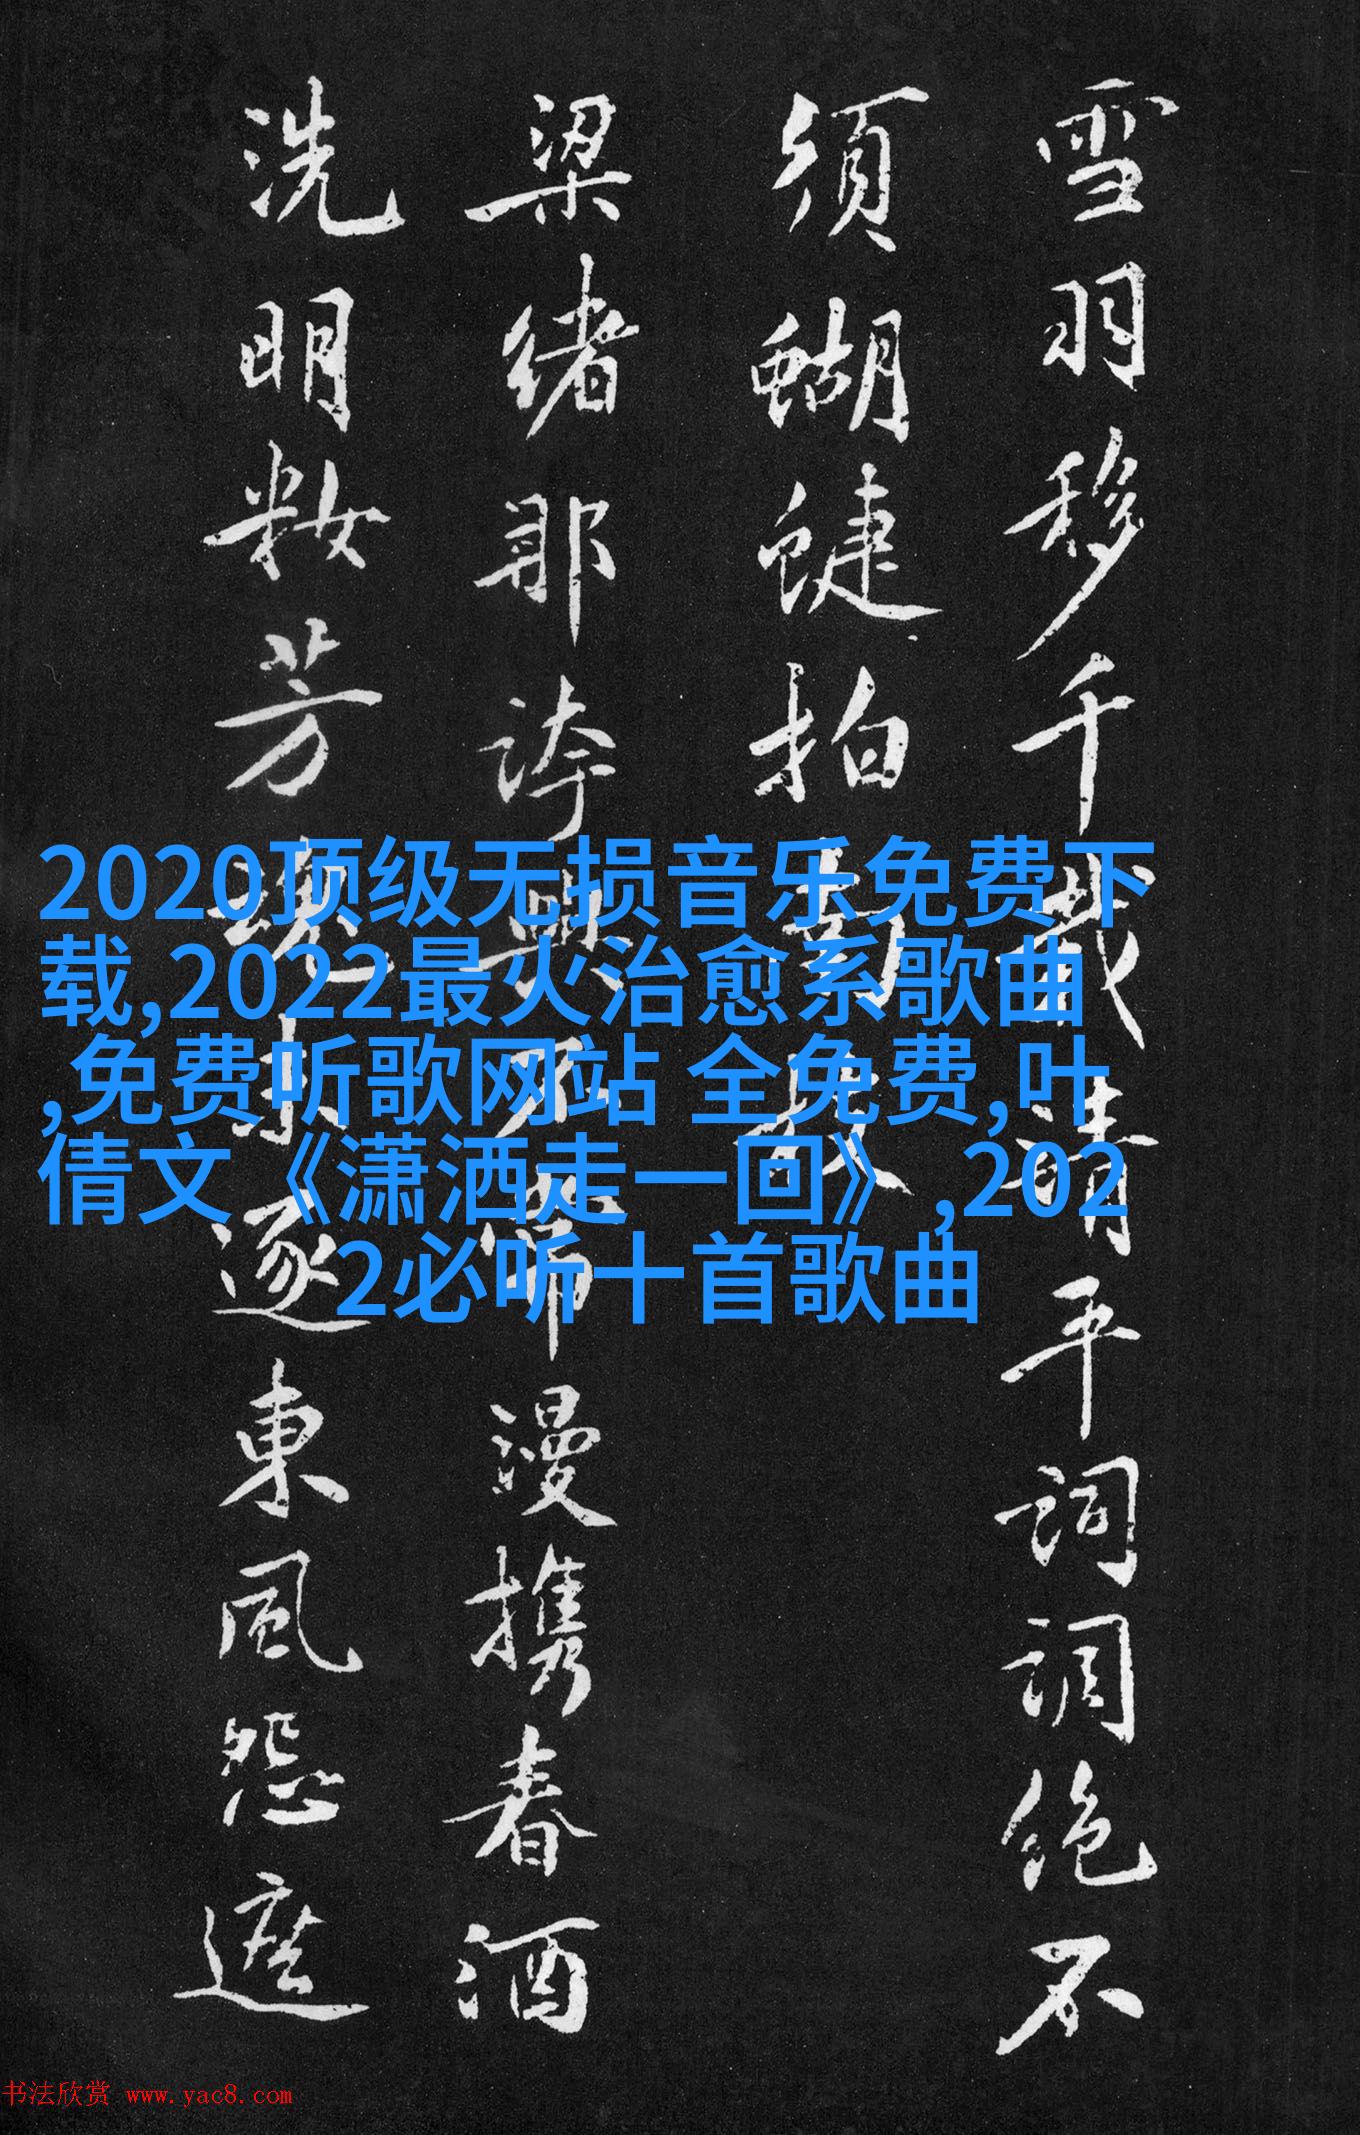 雪羽移千載清平詞調絕不
須蝴蜨拍
梁緒那誇興不常漫携春酒
洗明籹芳魂未逐東風怨遮
2020顶级无损音乐免费下
载,2022最火治愈系歌曲
,免费听歌网站 全免费,叶
倩文《潇洒走一回》,202
2必听十首歌曲
书法欣赏 www.yac8.com